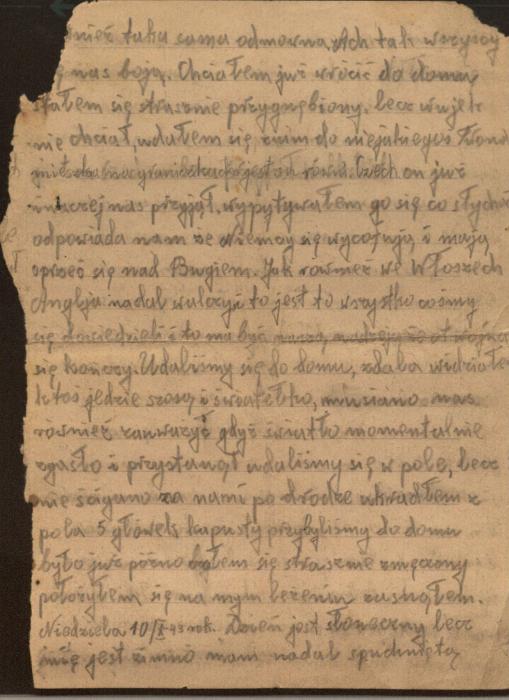 nież taka sama odmowna, Ach tak wszyscy
ę nas boją. Chciałem już wrócić do domu,
stałem się strasznie przygnębiony, lecz wujek
nie chciał, udałem się z nim do niejakiego
mieszka na granicach jest on Czech on już
inaczej nas przyjął, wypytywałem go się co słychać
odpowiada nam że Niemcy się wycofują i mają
oprzeć się nad Bugiem. Jak rówmeż we Włoszech
Anglja nadal walczy i to jest to wszystko cośmy
się dowiedzieli i to ma być naszą nadzieją że wojna
się kończy. Udaliśmy się do domu, zdala
ktoś jedzie szosą i światełko, musiano nas
rówmeż zauważyć gdyż światło momentalnie
zgasło i przystanął udaliśmy się w pole, lecz
nie ścigano za nami po drodze ukradłem z
pola 5 główek kapusty przybyliśmy do domu
było już późno byłem się strasznie zmęczony
położyłem się na mym leżeniu zasnąłem.
Niedziela 10/X 43 rok. Dzień jest słoneczny lecz
jest zimno mam nadal spuchniętą